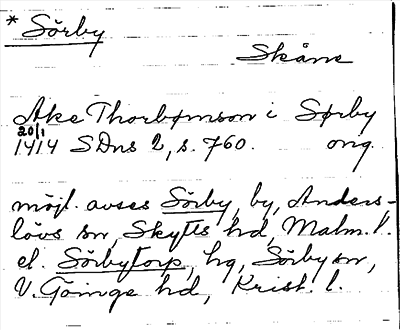 * Sörby
Skåne
Ake Thorbømson i Sørby
20/1
1414 SDns 2, s. 760. orig
möjl. avses Sörby, by, Anders-
lövs sn, Skytts hd, Malm. l.
el. Sörbytorp, hg, Sörby sn,
V. Göinge hd, Krist. l.